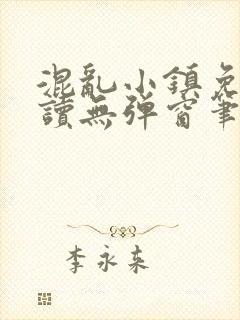 混亂小鎮免
讀無彈窗筆
李永來